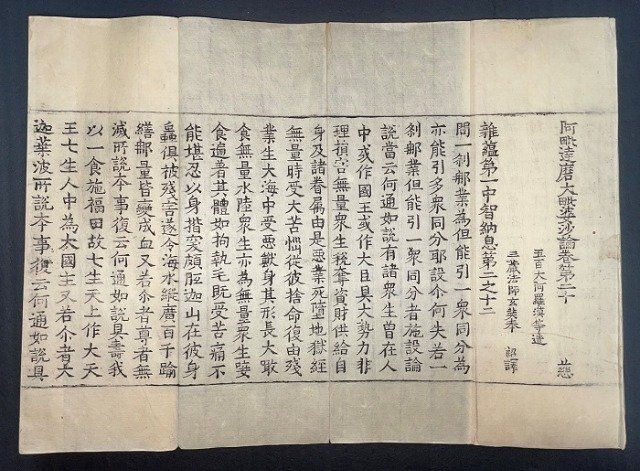 阿毗達磨大毗婆沙論卷第二十 悲
五百大阿羅漢等造
三藏法師玄奘奉 詔譯
雜蘊第一中智納息第二之十二
問一剎那業為但能引一衆同分為
亦能引多衆同分耶設尒何失若一
剎那業但能引一衆同分者施設論
說當云何通如說有諸衆生曾在人
中或作國王或作大臣具大勢力非
理損害無量衆生稅奪資財供給自
身及諸眷屬由是惡業死墮地獄經
無量時受大苦惱從彼捨命復由殘
業生大海中受惡獸身其形長大噉
食無量水陸衆生亦為無量衆生唼
食遍著其體如拘執毛既受苦痛不
能堪忍以身揩突頗胝迦山在彼身
蟲俱被殘害遂令海水縱廣百千踰
繕那量皆變成血又若尒者尊者無
滅所說本事復云何通如說具壽我
以一食施福田故七生天上作大天
王七生人中為大國主又若尒者大
迦葉波所說本事復云何通如說具